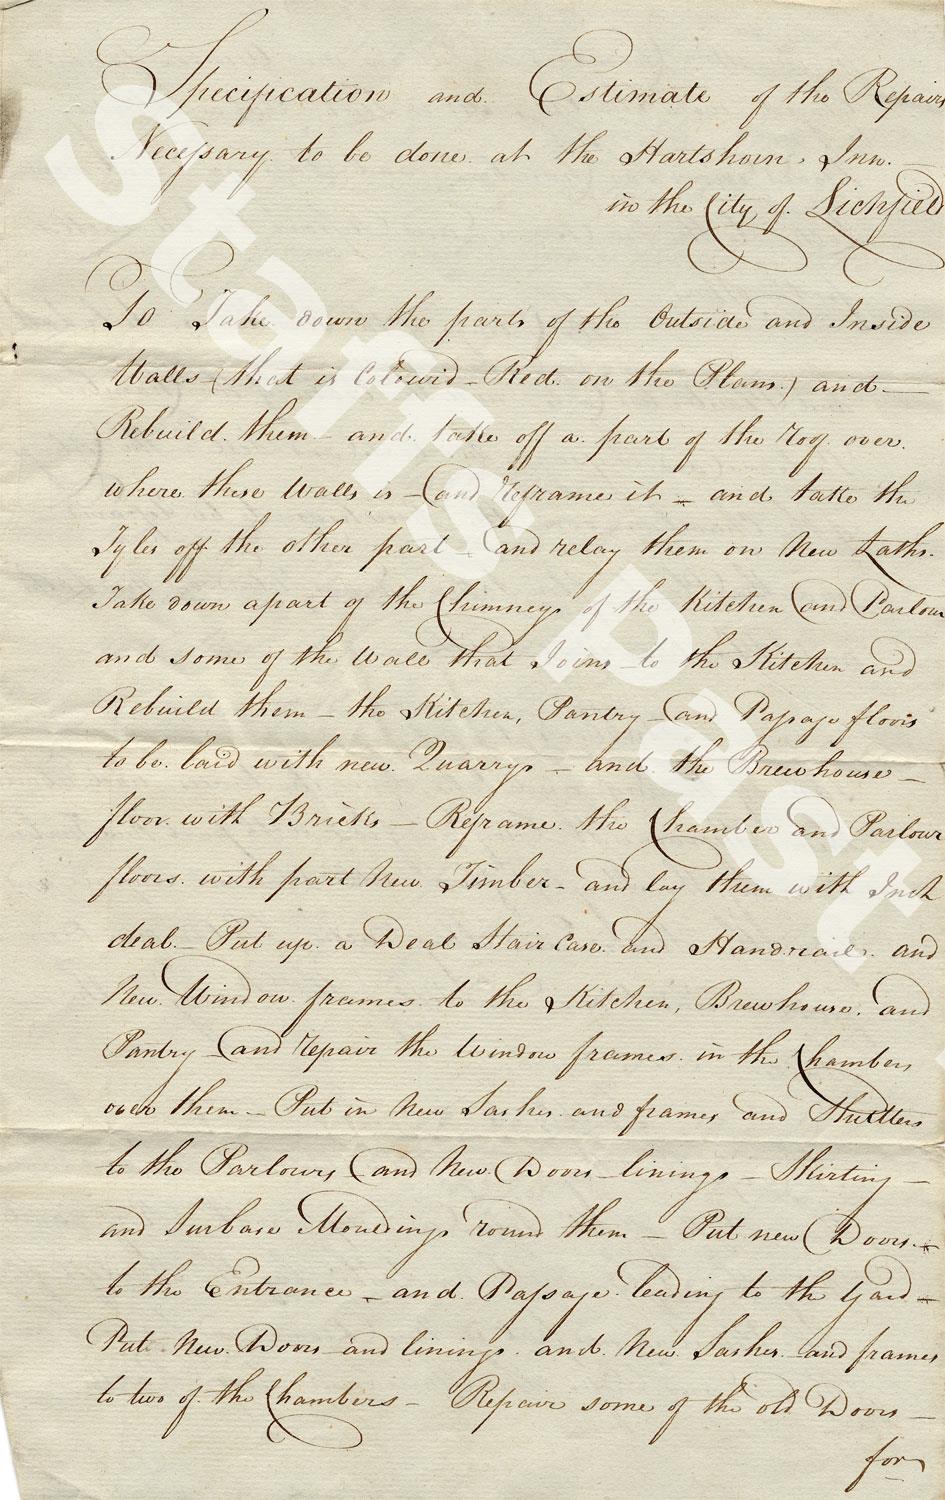 Specification and Estimate of the Repairs
Necessary to be done at the Hartshorn Inn.
in the City of Lichfield
To Take down the parts of the Outside and Inside
Walls (that is Colourd Red on the Plans.) and
Rebuild them - and take off a part of the roof over
where these Walls is - and reframe it - and take the
Tyles off the other part and relay them on New Laths.
Take down apart of the Chimneys of the Kitchen and Parlour
and some of the Wall that Joins to the Kitchen and
Rebuild them - the Kitchen, Pantry and Passage floors
to be laid with new Quarrys - and the Brewhouse -
floor with Bricks - Reframe the Chamber and Parlour
floors with part New Timber - and lay them with Inch
deal - Put up a Deal Stair Case and Handrail and
New Window frames to the Kitchen, Brewhouse, and
Pantry - and repair the Window frames in the Chambers
over them - Put in New Sashes and frames and Shutters
to the Parlours and New Doors linings - Skirting -
and Surbase Mouldings round them - Put new Doors -
to the Entrance - and Passage leading to the Yard -
Put New Doors and linings and New Sashes and frames
to two of the Chambers - Repair some of the old Doors -
for
Staffs Past